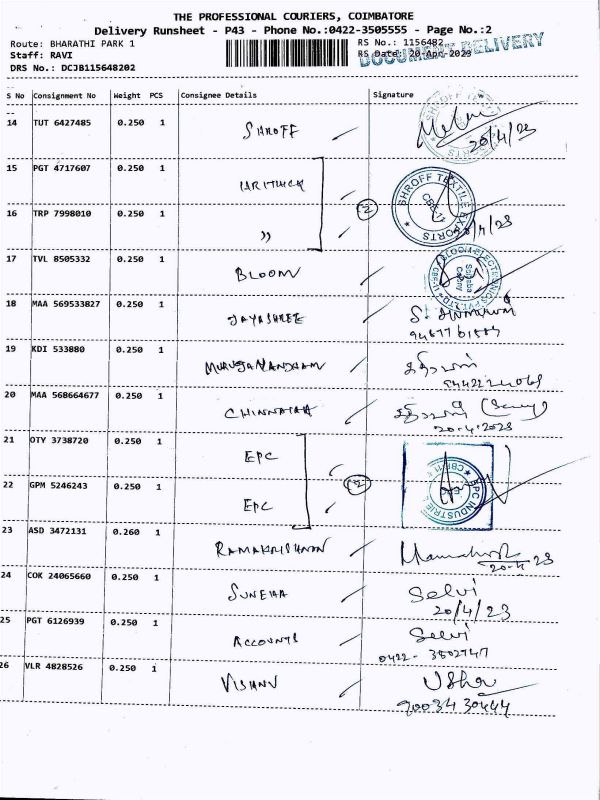 THE PROFESSIONAL COURIERS, COIMBATORE
Delivery Runsheet - P43 - Phone No.:0422-3505555 - Page No.:2
Route: BHARATHI PARK 1
RS No.: 1156482
Staff: RAVI
RS Date: 20-Apr-2023
DOCUMENT DELIVERY
DRS No.: DCJB115648202
S No Consignment No Weight PCS Consignee Details Signature
14 TUT 6427485 0.250 1 SHROFF
20/4/23
15 PGT 4717607 0.250 1
SHROFF TEXTILE EXPORTS
CBE-11
2
16 TRP 7998010 0.250 1 〃
17 TVL 8505332 0.250 1 BLOOM
18 MAA 569533827 0.250 1 JAYASHREE
19 KDI 533880 0.250 1 MURUGANANDHAM
20 MAA 568664677 0.250 1
20.4.2023
21 OTY 3738720 0.250 1 EPC
22 GPM 5246243 0.250 1 EPC
2
EPC INDUSTRIE
23 ASD 3472131 0.260 1 RAMAKRISHNAN
24 COK 24065660 0.250 1 SUNEHA Selvi
20/4/23
25 PGT 6126939 0.250 1 ACCOUNTS Selvi
0422- 3502747
26 VLR 4828526 0.250 1 VISHNU Usha
90034 30444